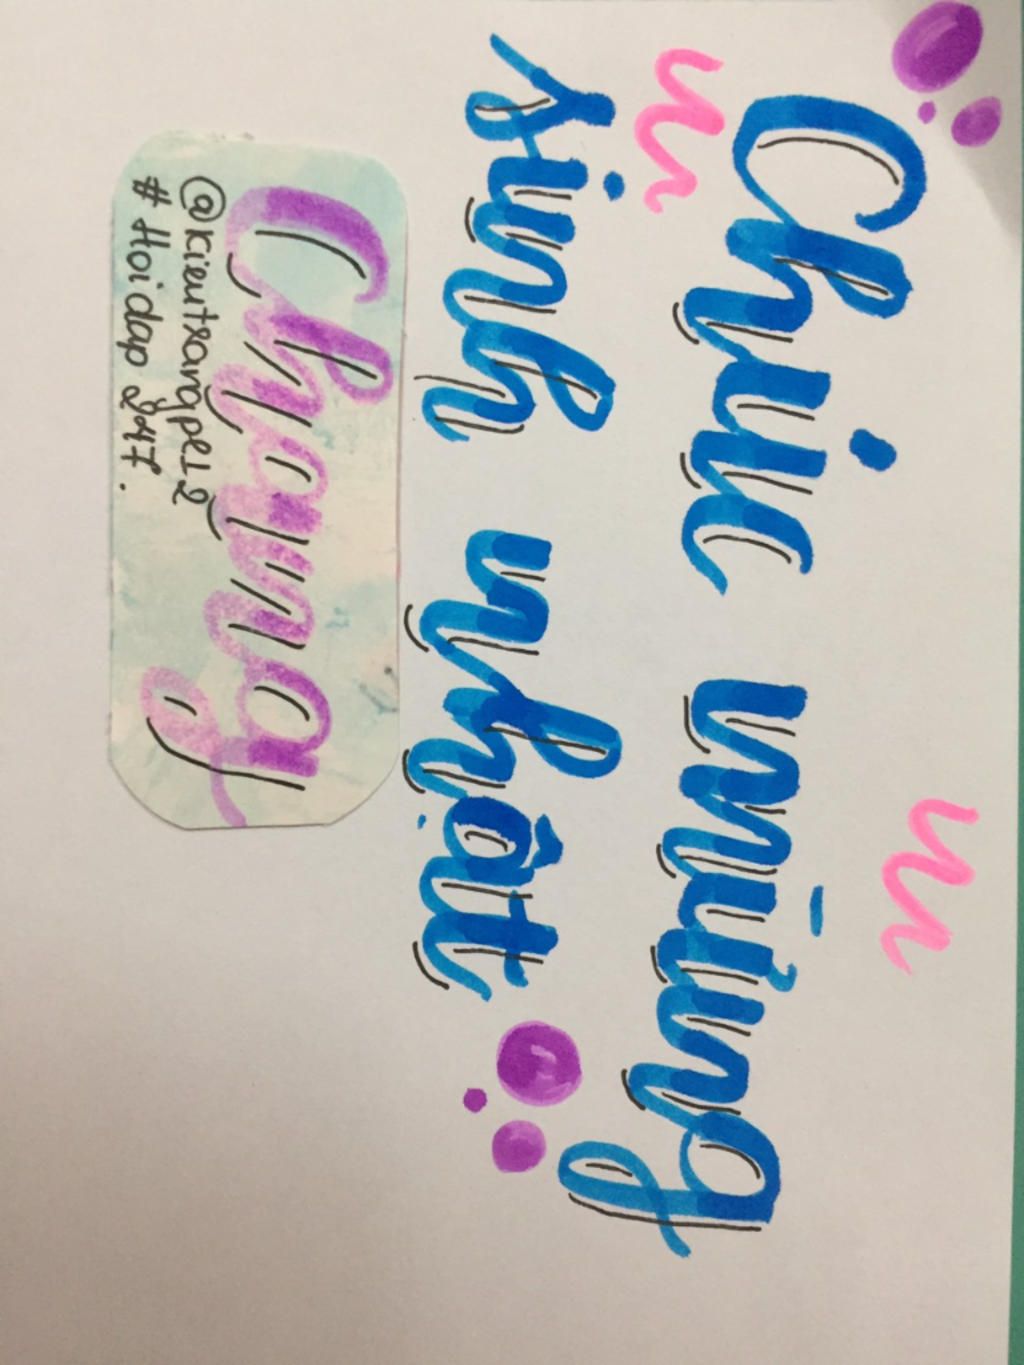 Chúc mừng
sinh nhật
Chang
# Hoidap 247.